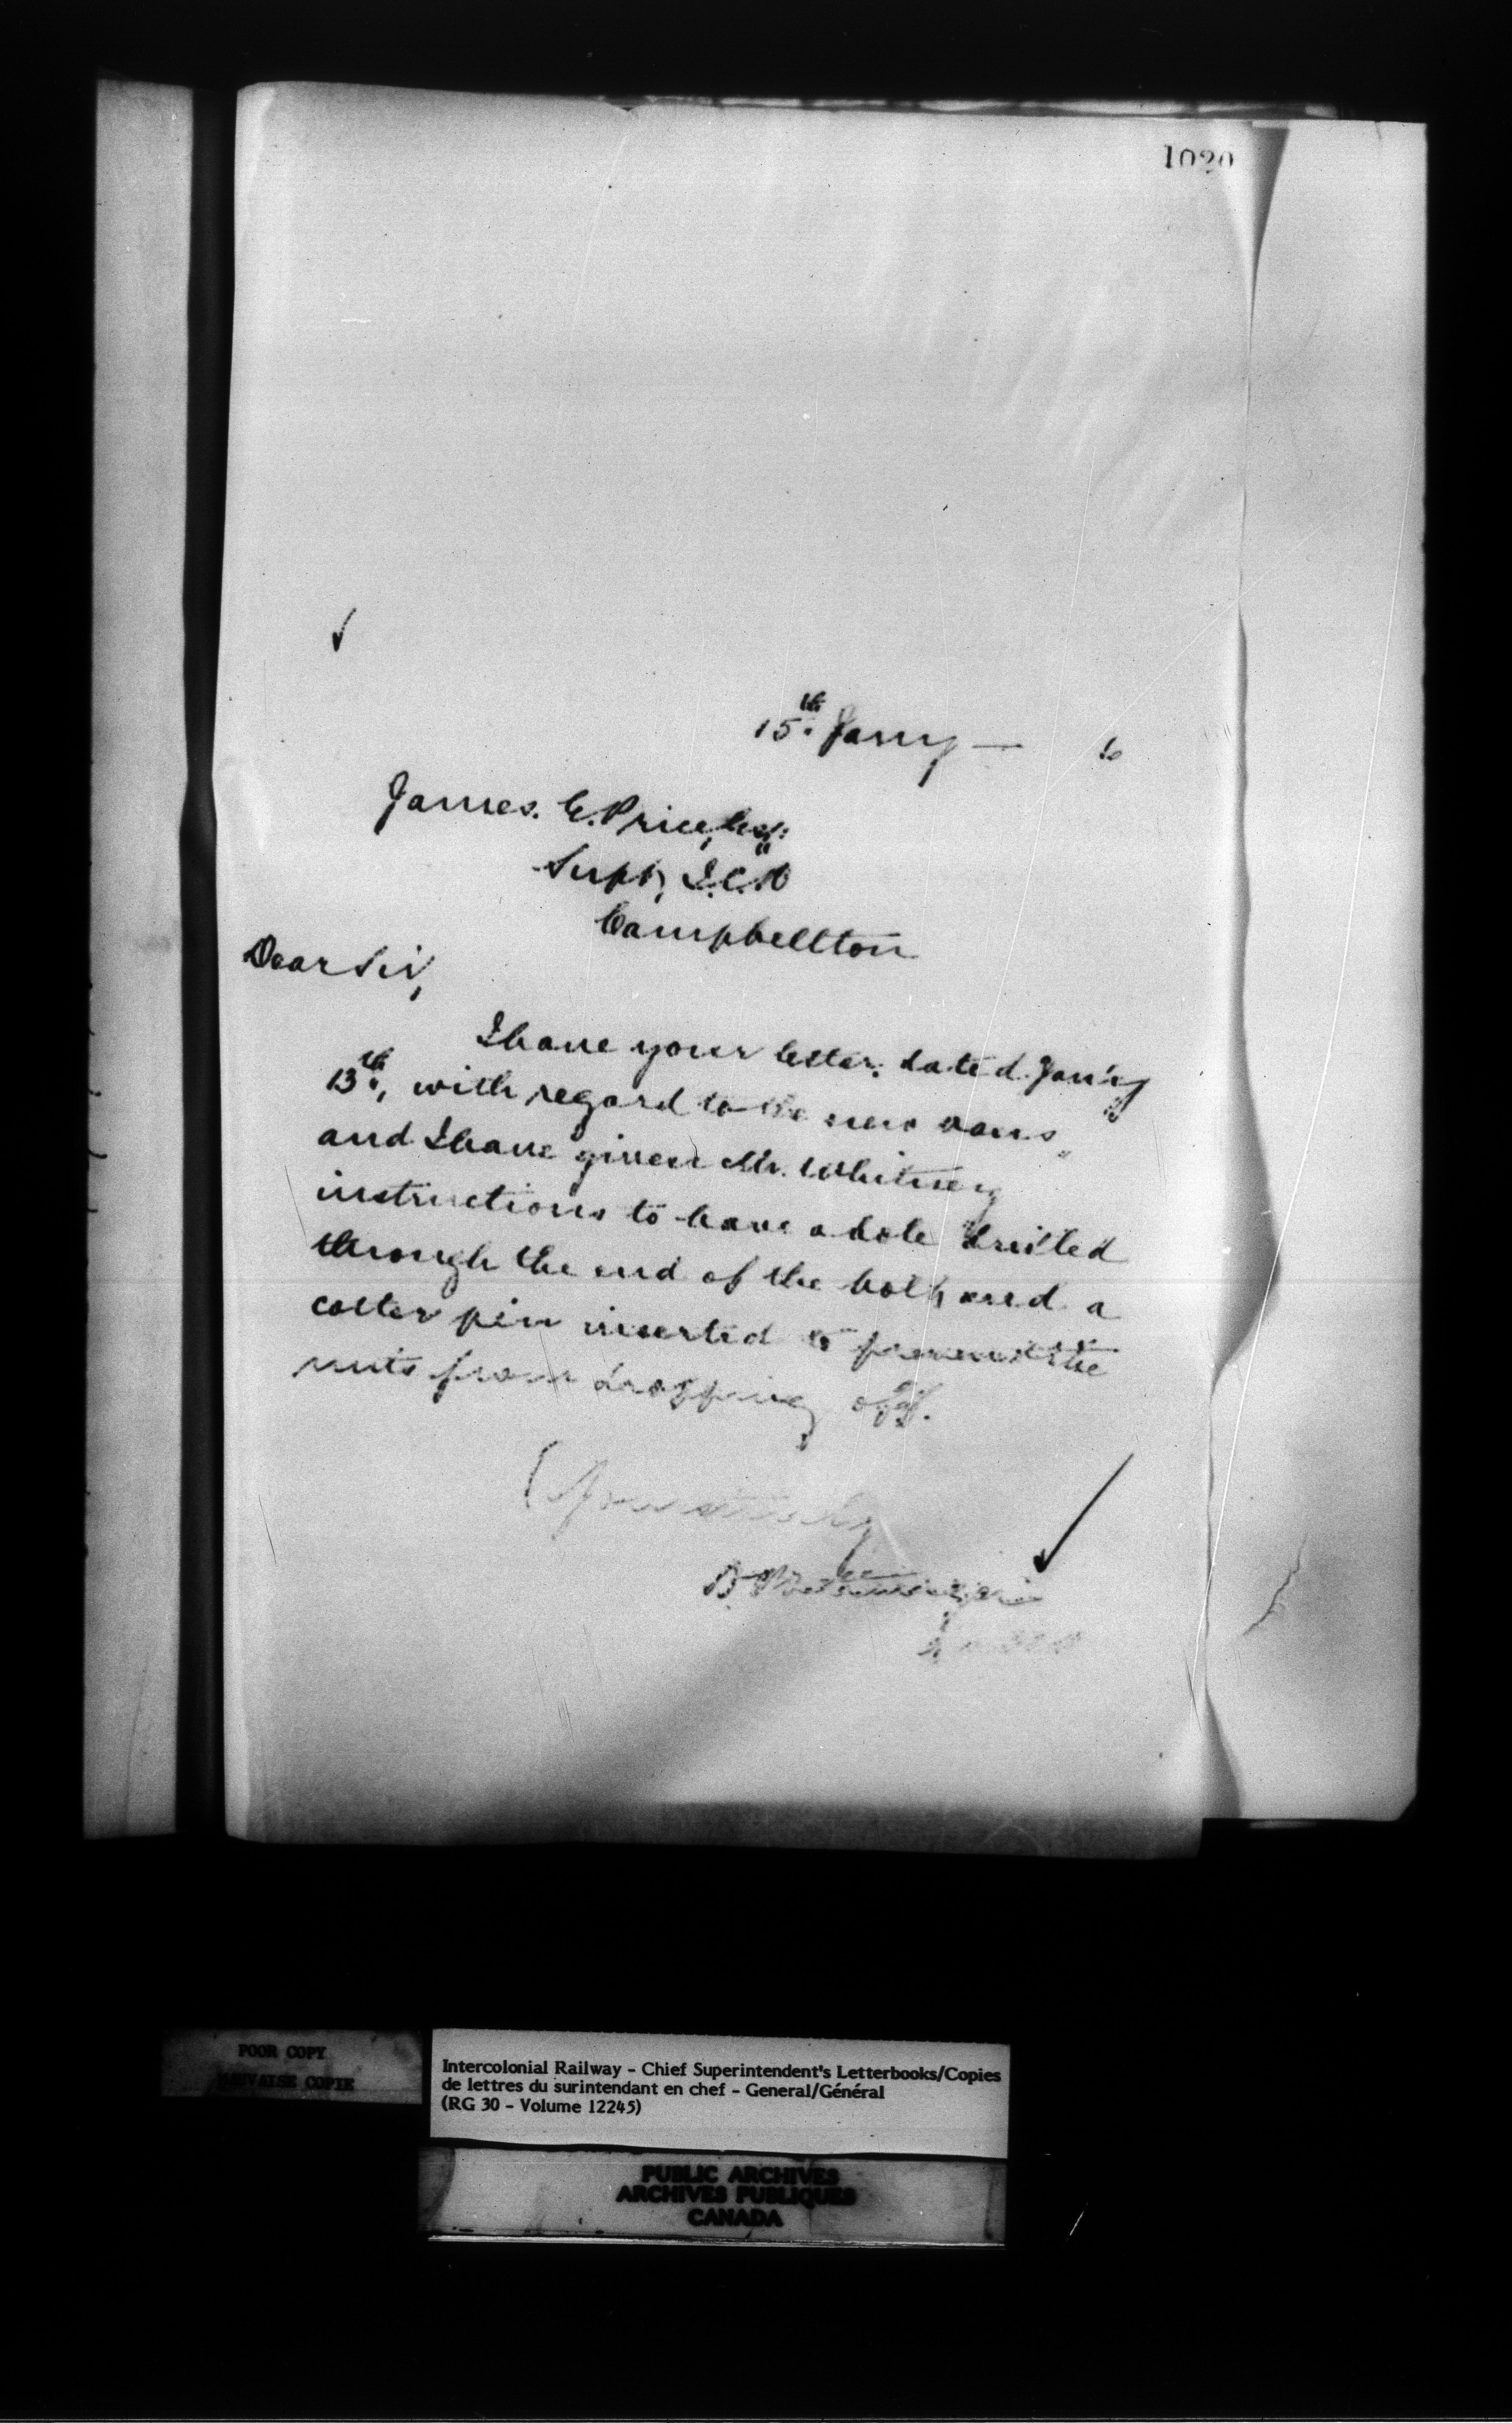 1020
15th Jany — 6
James. E. Price, Esq:
Supt, I.C.R
Campbellton
Dear Sir,
I have your letter, dated Jan'y
13th, with regard to the new vans
and I have given Mr. Whitney
instructions to have a hole drilled
through the end of the bolt, and a
cotter pin inserted to prevent the
nuts from dropping off.
Yours truly
D. Pottinger
POOR COPY
MAUVAISE COPIE
Intercolonial Railway - Chief Superintendent's Letterbooks/Copies
de lettres du surintendant en chef - General/Général
(RG 30 - Volume 12245)
PUBLIC ARCHIVES
ARCHIVES PUBLIQUES
CANADA